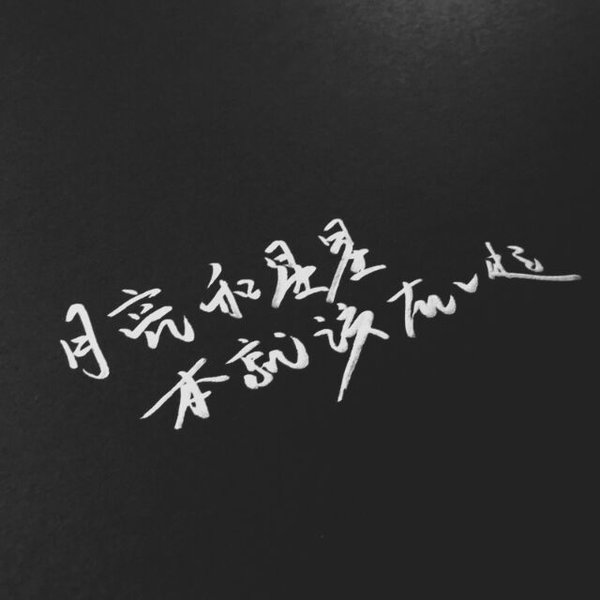 月亮和星星
本就该在一起